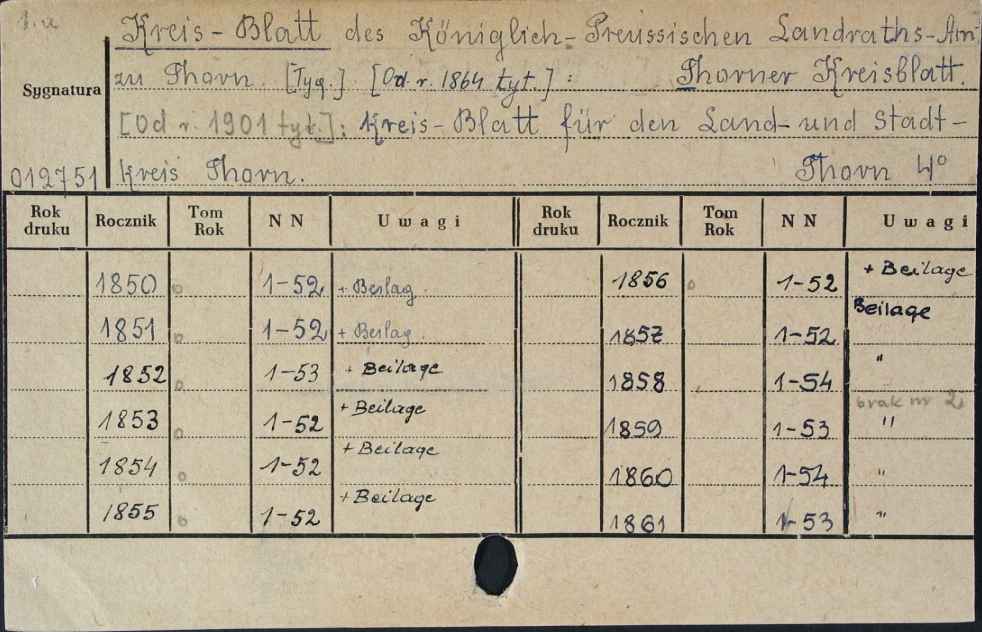 Kreis-Blatt des Königlich-Preussischen Landraths-Am
zu Thorn. [Tyg.] [Od r. 1864 tyt.]: Thorner Kreisblatt.
Sygnatura
[Od r. 1901 tyt.]: Kreis-Blatt für den Land- und Stadt-
012751 kreis Thorn. Thorn 4°
Rok druku Rocznik Tom Rok NN Uwagi Rok druku Rocznik Tom Rok NN Uwagi
1850 1-52 + Beilag. 1856 1-52 + Beilage
1851 1-52 + Beilag. 1857 1-52 Beilage
1852 1-53 + Beilage 1858 1-54 "
1853 1-52 + Beilage 1859 1-53 brak nr 2 "
1854 1-52 + Beilage 1860 1-54 "
1855 1-52 + Beilage 1861 1-53 "